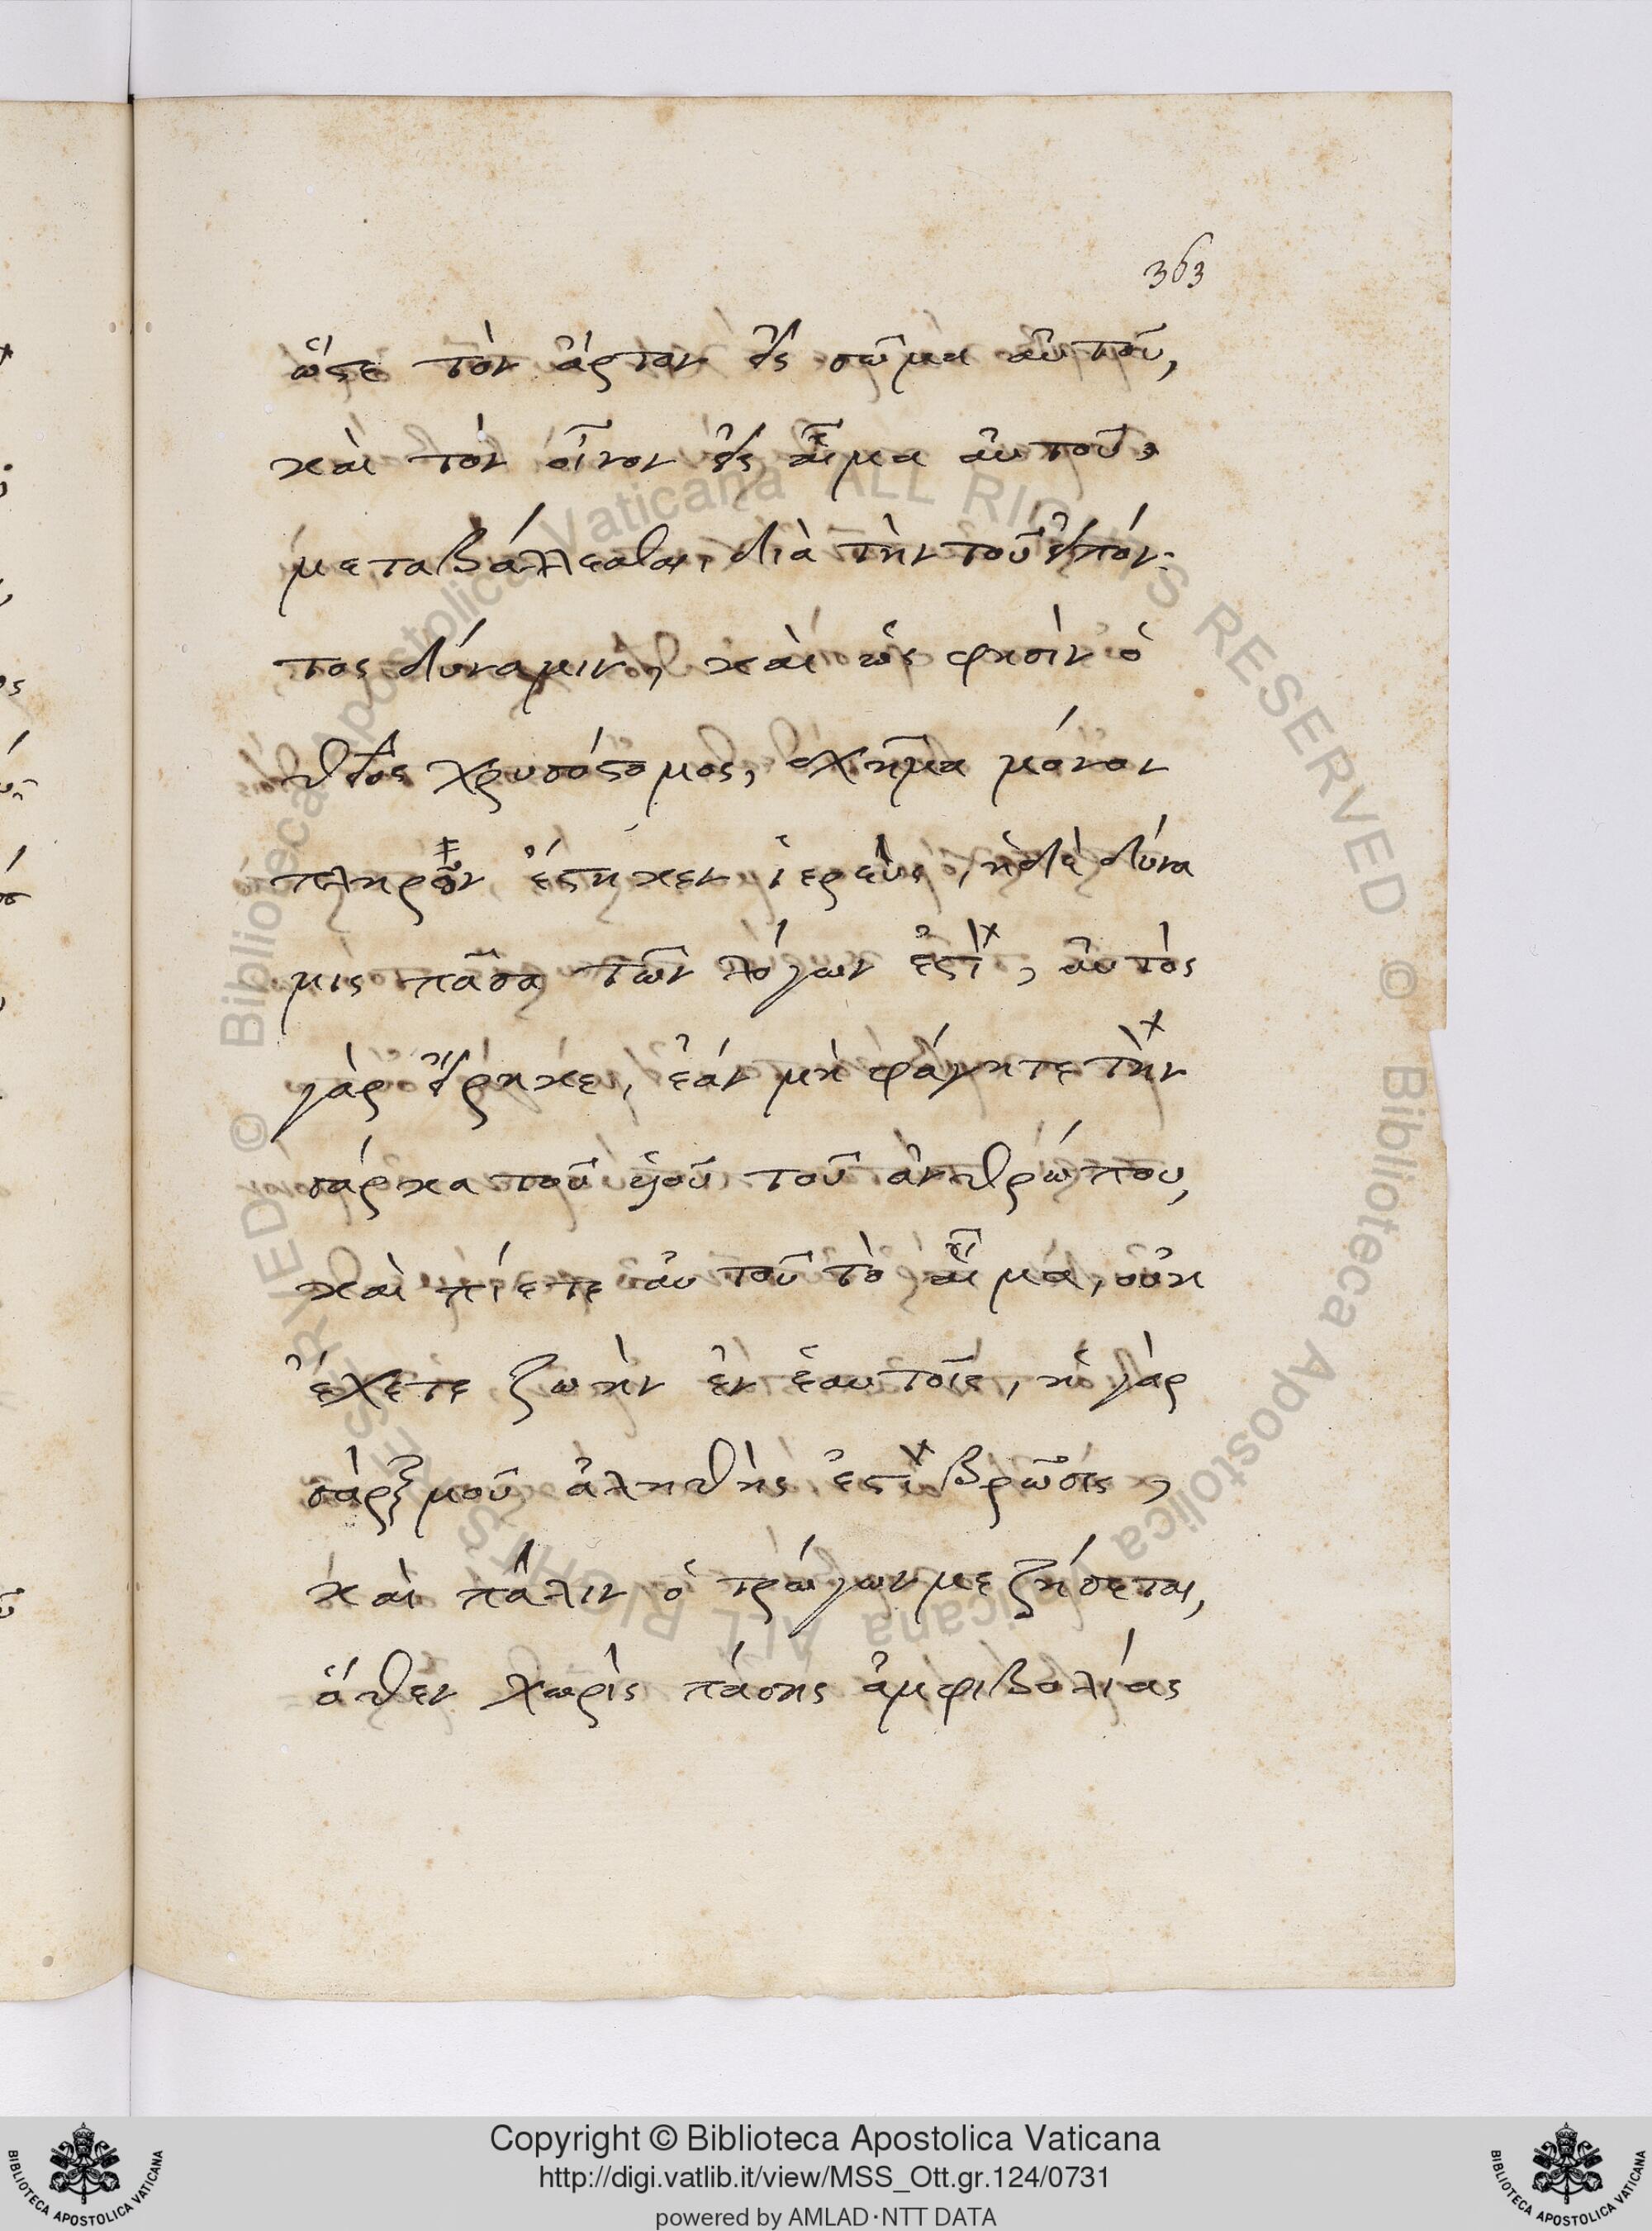 363
ὥστε τὸν ἄρτον εἰς σῶμα αὐτοῦ,
καὶ τὸν οἶνον εἰς αἷμα αὐτοῦ,
μεταβάλλεσθαι, διὰ τὴν τοῦ εἰπόν-
τος δύναμιν, καὶ ὥς φησὶν ὁ
θεῖος χρυσόστομος, σχῆμα μόνον
πληρῶν ἕστηκεν ἱερεὺς, ἡ δὲ δύνα
μις πᾶσα τῶν λόγων ἐστὶ, αὐτὸς
γὰρ εἴρηκε, ἐάν μὴ φάγητε τὴν
σάρκα τοῦ υἱοῦ τοῦ ἀνθρώπου,
καὶ πίετε αὐτοῦ τὸ αἷμα, οὐκ
ἔχετε ζωὴν ἐν ἑαυτοῖς, ἡ γὰρ
σὰρξ μοῦ ἀληθὴς ἐστὶ βρῶσις,
καὶ πάλιν ὁ τρώγων με ζήσεται,
ὅθεν χωρὶς πάσης ἀμφιβολίας
© Biblioteca Apostolica Vaticana ALL RIGHTS RESERVED © Biblioteca Apostolica Vaticana ALL RIGHTS RESERVED
Copyright © Biblioteca Apostolica Vaticana
http://digi.vatlib.it/view/MSS_Ott.gr.124/0731
powered by AMLAD·NTT DATA
BIBLIOTECA APOSTOLICA VATICANA
BIBLIOTECA APOSTOLICA VATICANA